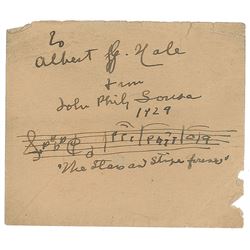 To
Albert H. Hale
from
John Philip Sousa
1929
"The Stars and Stripes forever"